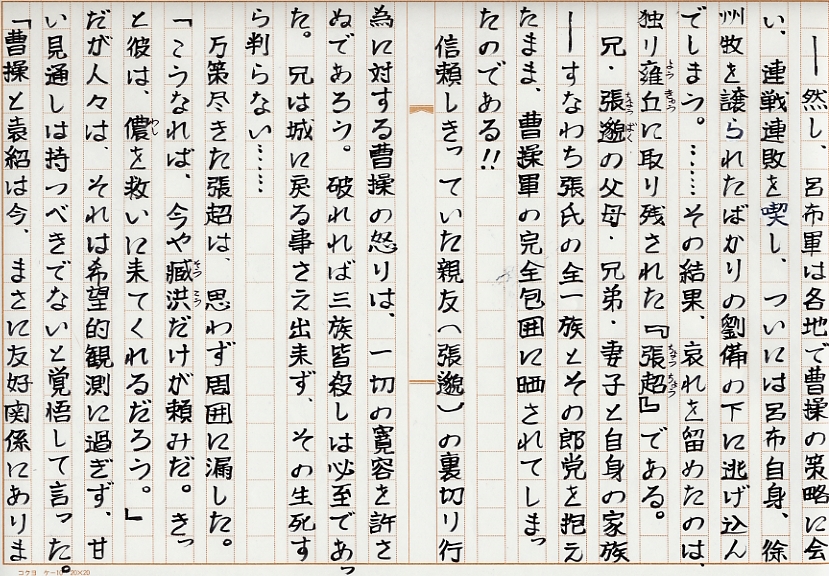 ――然し、呂布軍は各地で曹操の策略に会
い、連戦連敗を喫し、ついには呂布自身、徐
州牧を譲られたばかりの劉備の下に逃げ込ん
でしまう。……その結果、哀れを留めたのは、
独り雍丘に取り残された『張超』である。
兄・張邈の父母・兄弟・妻子と自身の家族
――すなわち張氏の全一族とその郎党を抱え
たまま、曹操軍の完全包囲に晒されてしまっ
たのである!!
信頼しきっていた親友(張邈)の裏切り行
為に対する曹操の怒りは、一切の寛容を許さ
ぬであろう。破れれば三族皆殺しは必至であっ
た。兄は城に戻る事さえ出来ず、その生死す
ら判らない……
万策尽きた張超は、思わず周囲に漏した。
「こうなれば、今や臧洪だけが頼みだ。きっ
と彼は、儂を救いに来てくれるだろう。」
だが人々は、それは希望的観測に過ぎず、甘
い見通しは持つべきでないと覚悟して言った。
「曹操と袁紹は今、まさに友好関係にありま
コクヨ ケ-10 20×20